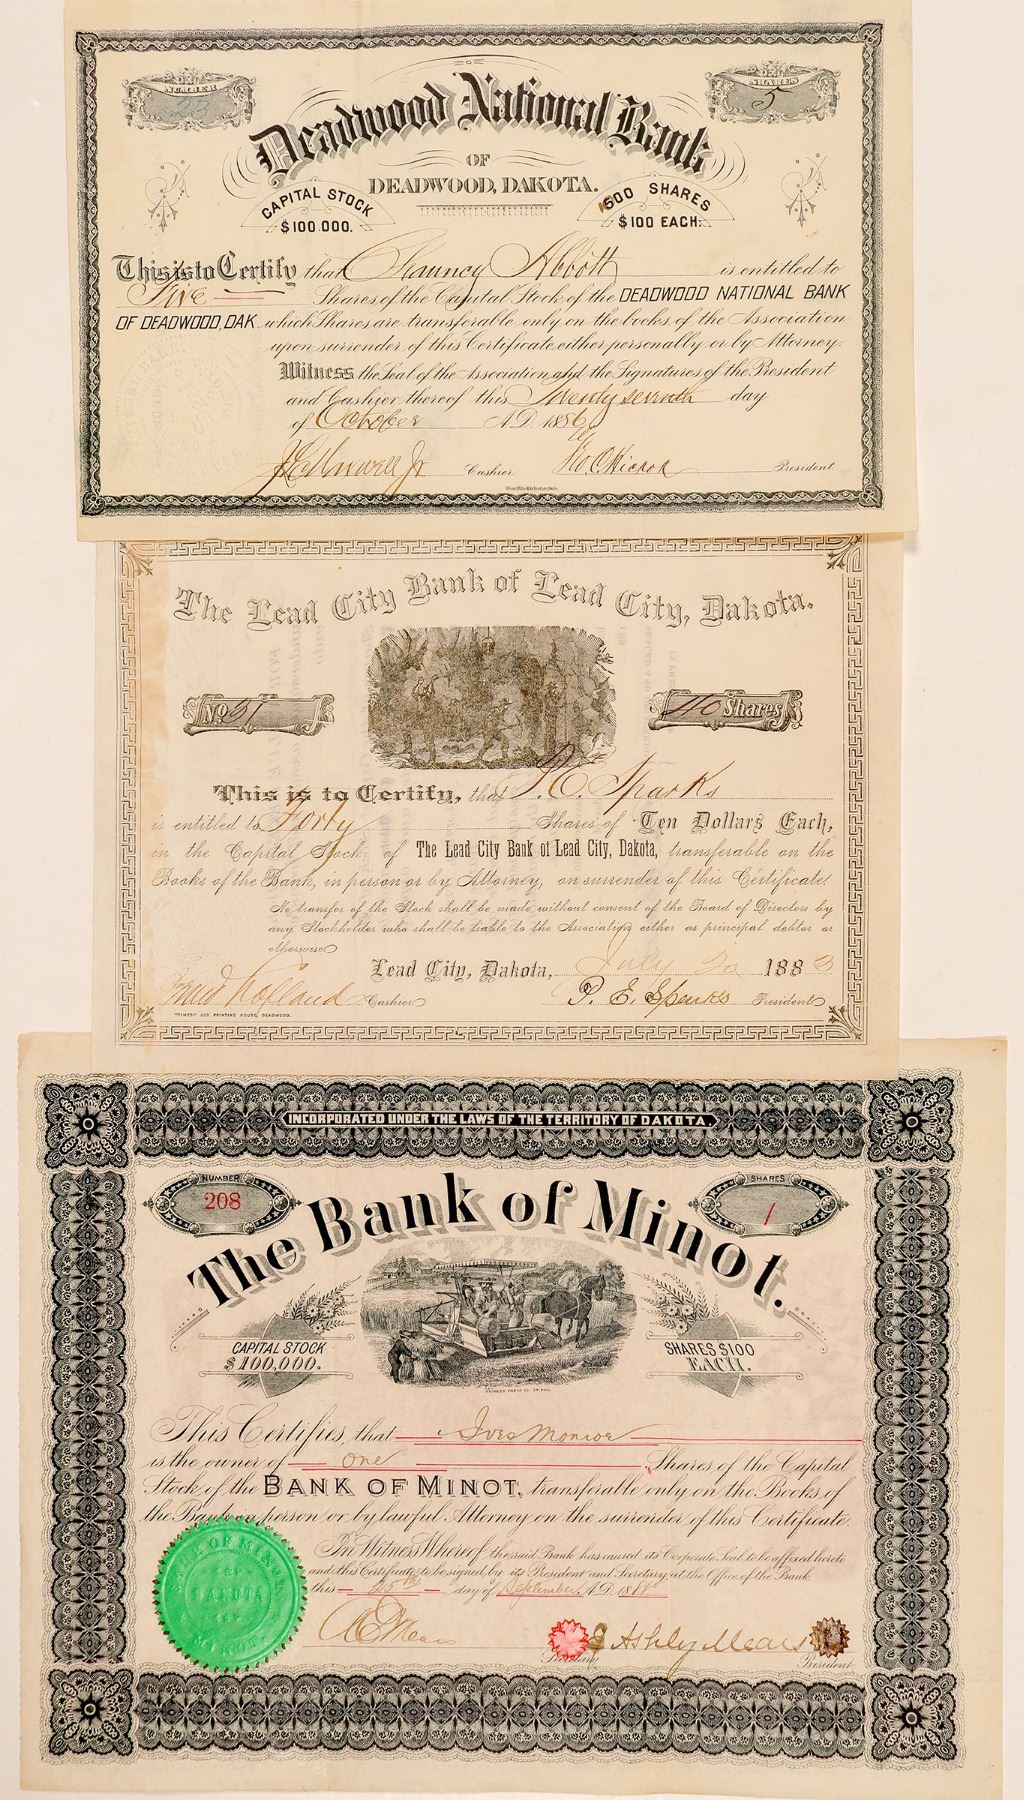 NUMBER
23
SHARES
5
Deadwood National Bank
OF
DEADWOOD, DAKOTA.
CAPITAL STOCK
$100.000.
SHARES
$100 EACH.
This is to Certify that Chauncy Abbott is entitled to
Five Shares of the Capital Stock of the DEADWOOD NATIONAL BANK
OF DEADWOOD, DAK. which Shares are transferable only on the books of the Association
upon surrender of this Certificate either personally or by Attorney.
Witness the Seal of the Association and the Signatures of the President
and Cashier thereof this Twenty seventh day
of October A.D. 1886
Cashier President
The Lead City Bank of Lead City, Dakota.
No 31
40 Shares
This is to Certify, that P. E. Sparks
is entitled to Forty Shares of Ten Dollars Each,
in the Capital Stock of The Lead City Bank of Lead City, Dakota, transferable on the
Books of the Bank, in person or by Attorney, on surrender of this Certificate.
No transfer of the Stock shall be made without consent of the Board of Directors by
any Stockholder who shall be liable to the Association either as principal debtor or
otherwise
Lead City, Dakota, July 20 1883
Cashier P. E. Sparks President
"TIMES" JOB PRINTING HOUSE, DEADWOOD.
INCORPORATED UNDER THE LAWS OF THE TERRITORY OF DAKOTA
NUMBER
208
SHARES
1
The Bank of Minot.
CAPITAL STOCK
$100,000.
SHARES $100
EACH.
PIONEER PRESS CO. ST. PAUL
This Certifies, that Ives Monroe
is the owner of One Shares of the Capital
Stock of the BANK OF MINOT, transferable only on the Books of
the Bank in person or by lawful Attorney on the surrender of this Certificate.
In Witness Whereof the said Bank has caused its Corporate Seal to be affixed hereto
and this Certificate to be signed by its President and Secretary at the Office of the Bank
this 25th day of September A.D. 188
BANK OF MINOT
DAKOTA
MINOT
Ashly Mears
Secretary President